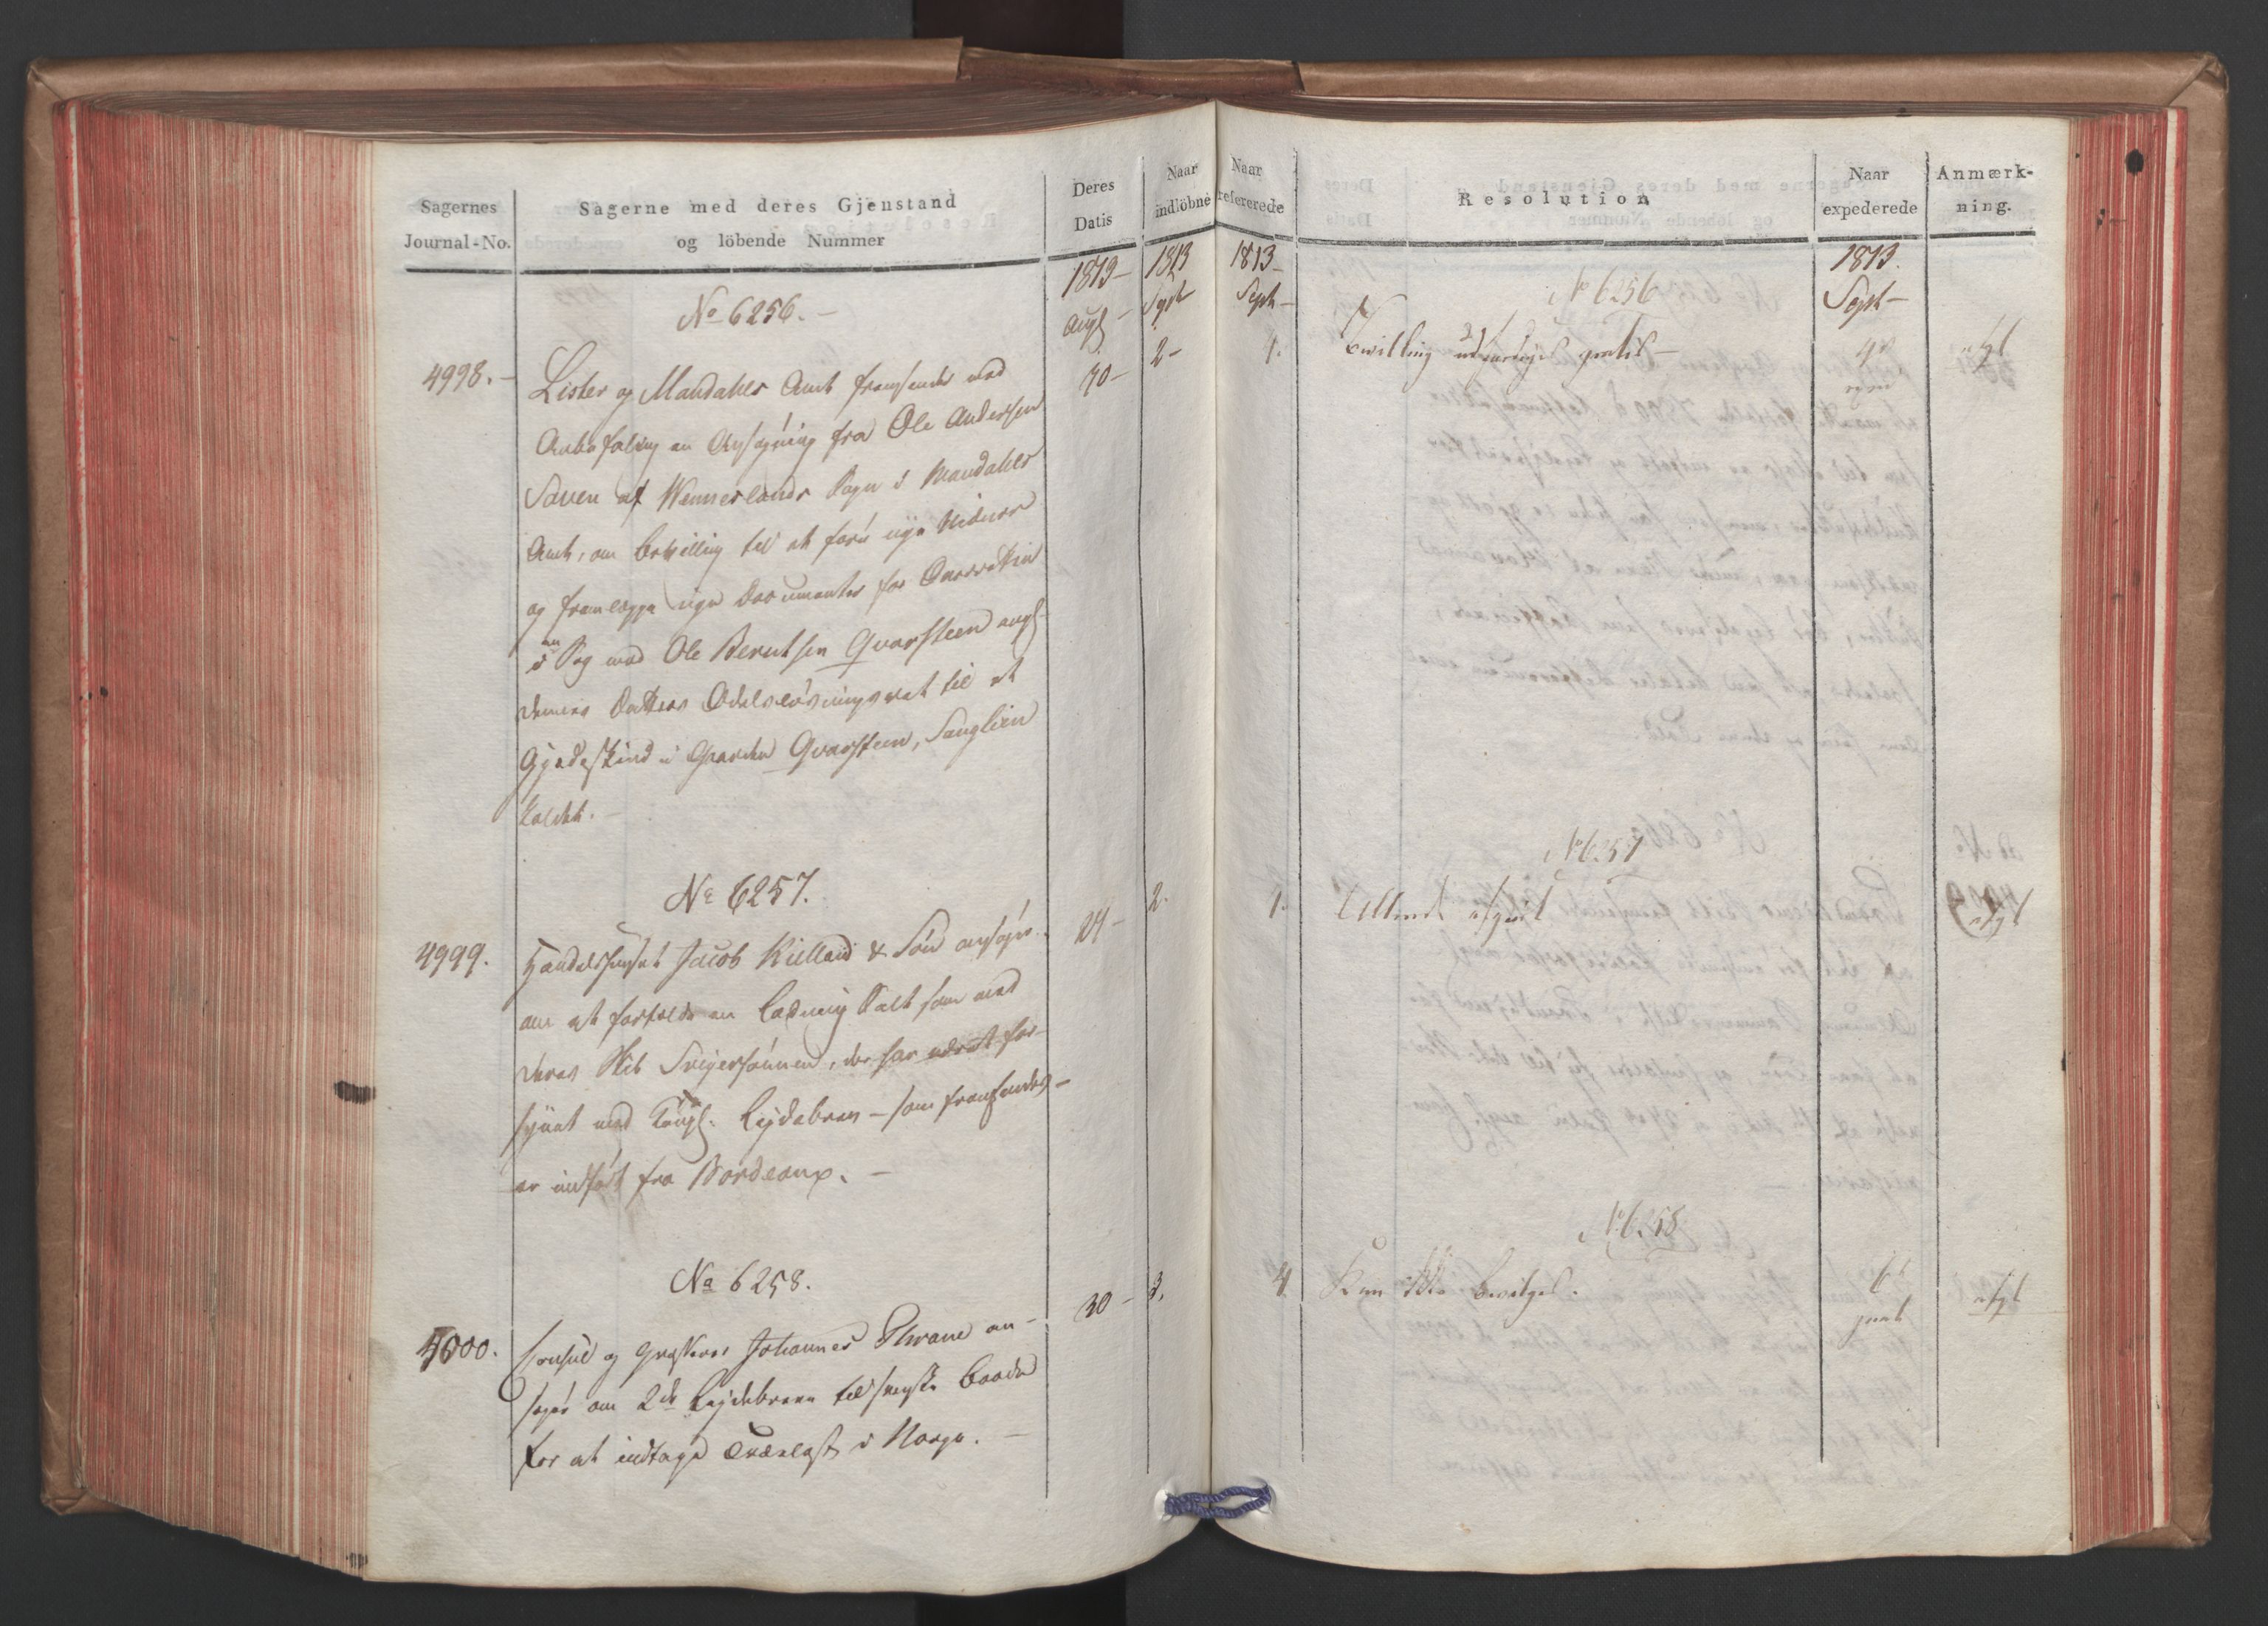 Sagernes
Journal-No.
Sagerne med deres Gjenstand
og löbende Nummer
Deres
Datis
Naar
indlöbne
Naar
refererede
Resolution
Naar
expederede
Anmærk-
ning.
1813
1813
1813
1813.
Augs
Sept
Sept
Sept
No 6256.
No 6256
4998.
30
2
4.
Lister og Mandahls Amt fremsender med
Anbefaling en Ansøgning fra Ole Andersen
af Wennerlands Sogn i Mandahls
Amt, om Bevilling til at føre nye Vidner
og fremlægge nye Documenter for Overretten
i en Sag mod Ole Berntsen Qvarsteen angl
dennes Odelsløsningsret til et
i Gaarden Qvarsteen,
kaldet.
Bevilling udfærdiges gratis
No 6257.
No 6257
4999.
24
2.
Handelshuset Jacob Kielland & Søn ansøger
om at fortolde en Ladning Salt som med
deres Skib Svigersønnen, der har været for-
synet med Kongl. Leydebrev - som fremsendes -
er indført fra Bordeaux.
No 6258.
No 6258
5000.
30
3.
4.
Consul og Johannes Thrane an-
søger om 2de Leydebreve til svenske Baade
for at indtage Trælast i Norge.
Kan ikke bevilges.